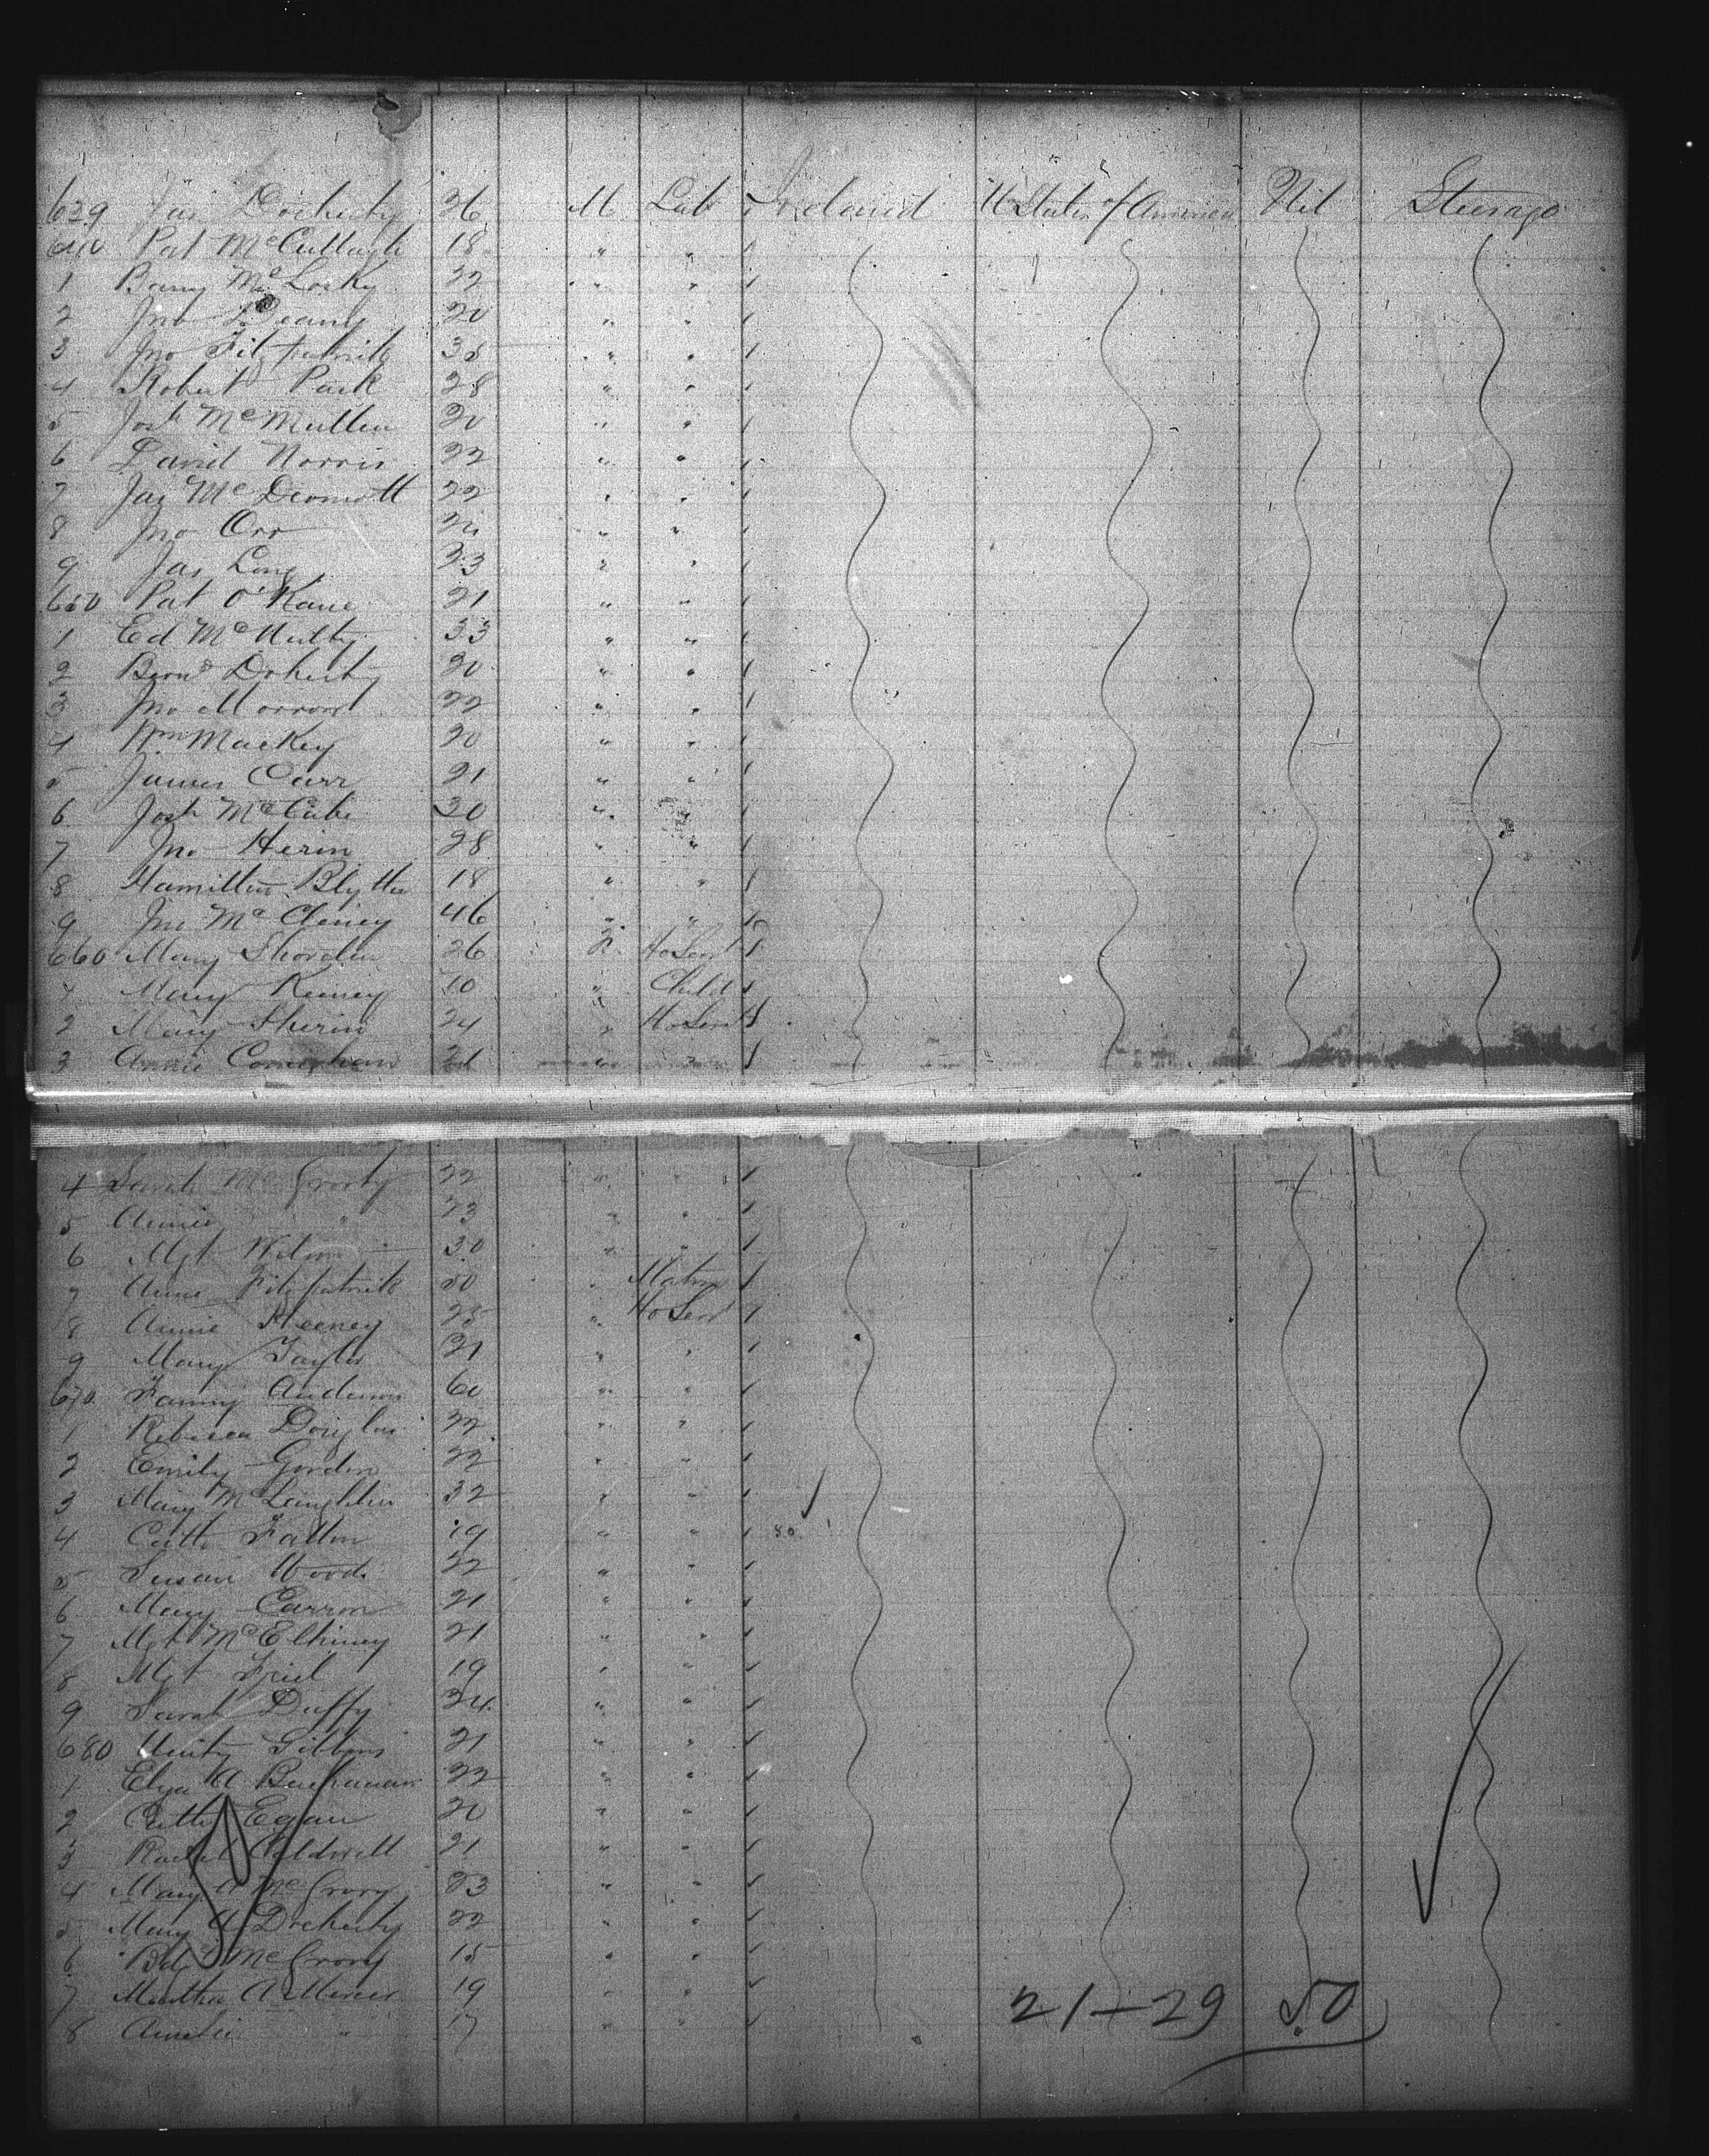 639 Jas Docherty 26 M Lab Ireland U States of America Nil Steerage
640 Pat McCullagh 18 " "
1 Barny Mc Losky 22 " "
2 Jno 20 " "
3 Jno Fitzpatrick 35 " "
4 Robert Park 28 " "
5 Josh McMullen 20 " "
6 David Norris 22 " "
7 Jas McDermott 22 " "
8 Jno Orr " "
9 Jas Long 33 " "
650 Pat O'Kane 21 " "
1 Ed McNulty 33 " "
2 Bernd Doherty 20 " "
3 Jno Morrow 22 " "
4 Wm Mackey 20 " "
5 James Carr 21 " "
6 Josh McCabe 30 " "
7 Jno Herin 28 " "
8 Hamilton Blythe 18 " "
9 Jno Mc 46 " "
660 Mary 26 F Ho Servt
1 Mary 10 " Child
2 Mary 24 " Ho Servt
3 Annie
4 Sarah McGrorty 22 " "
5 Annie " 23 " "
6 Mgt Wilson 30 " "
7 Anne Fitzpatrick 50 " Matron
8 Annie Sheeney 25 " Ho Servt
9 Mary Taylor 21 " "
670 Fanny Anderson 60 " "
1 Rebecca Douglas 22 " "
2 Emily Gordon 22 " "
3 Mary McLaughlin 32 " "
4 Cath Fallon 19 " "
5 Susan Woods 22 " "
6 Mary Carron 21 " "
7 Mgt McElhiney 21 " "
8 Mgt Friel 19 " "
9 Sarah Duffy 24 " "
680 Unity Gibbons 21 " "
1 Eliza A Buchanan 22 " "
2 Cath Egan 20 " "
3 Rachel Caldwell 21 " "
4 Mary A McGrory 23 " "
5 Mary A Docherty 22 " "
6 McGrory 15 " "
7 Martha A Mercer 19 " "
8 Amelia " 17 " "
21-29 50